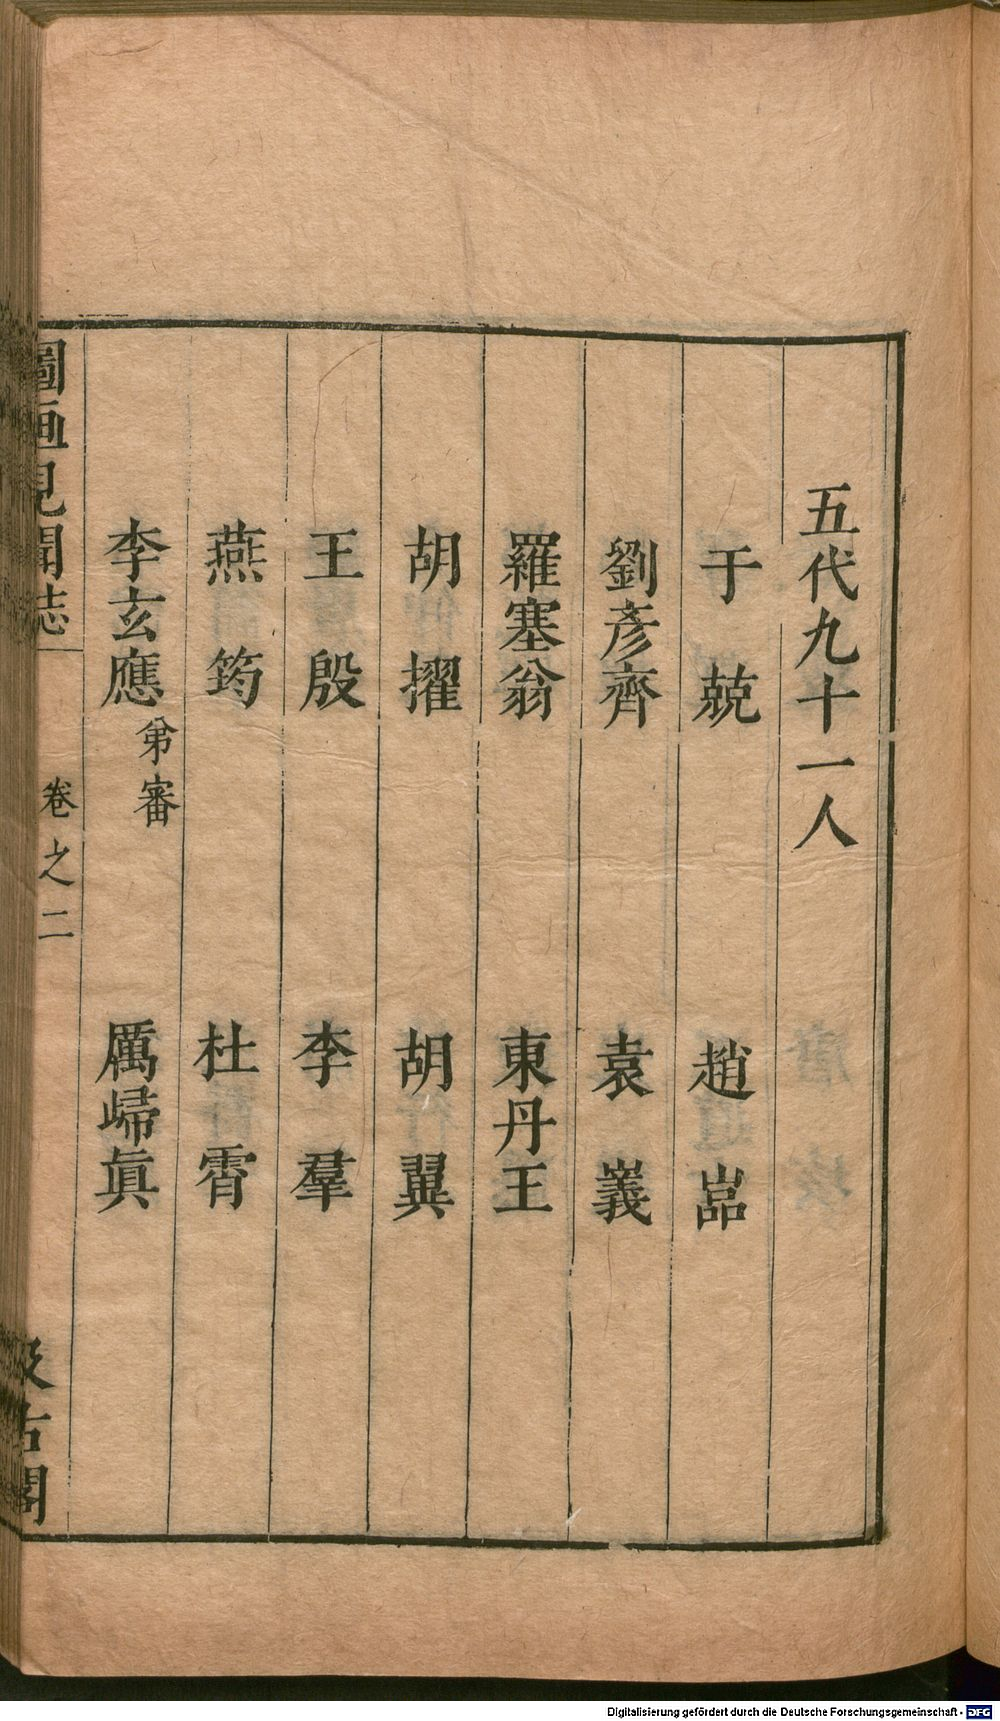 五代九十一人
于兢　趙嵒
劉彥齊　袁嶬
羅塞翁　東丹王
胡擢　胡翼
王殷　李羣
燕筠　杜霄
李玄應弟審　厲歸眞
圖画見聞志　卷之二　汲古閣
Digitalisierung gefördert durch die Deutsche Forschungsgemeinschaft - DFG